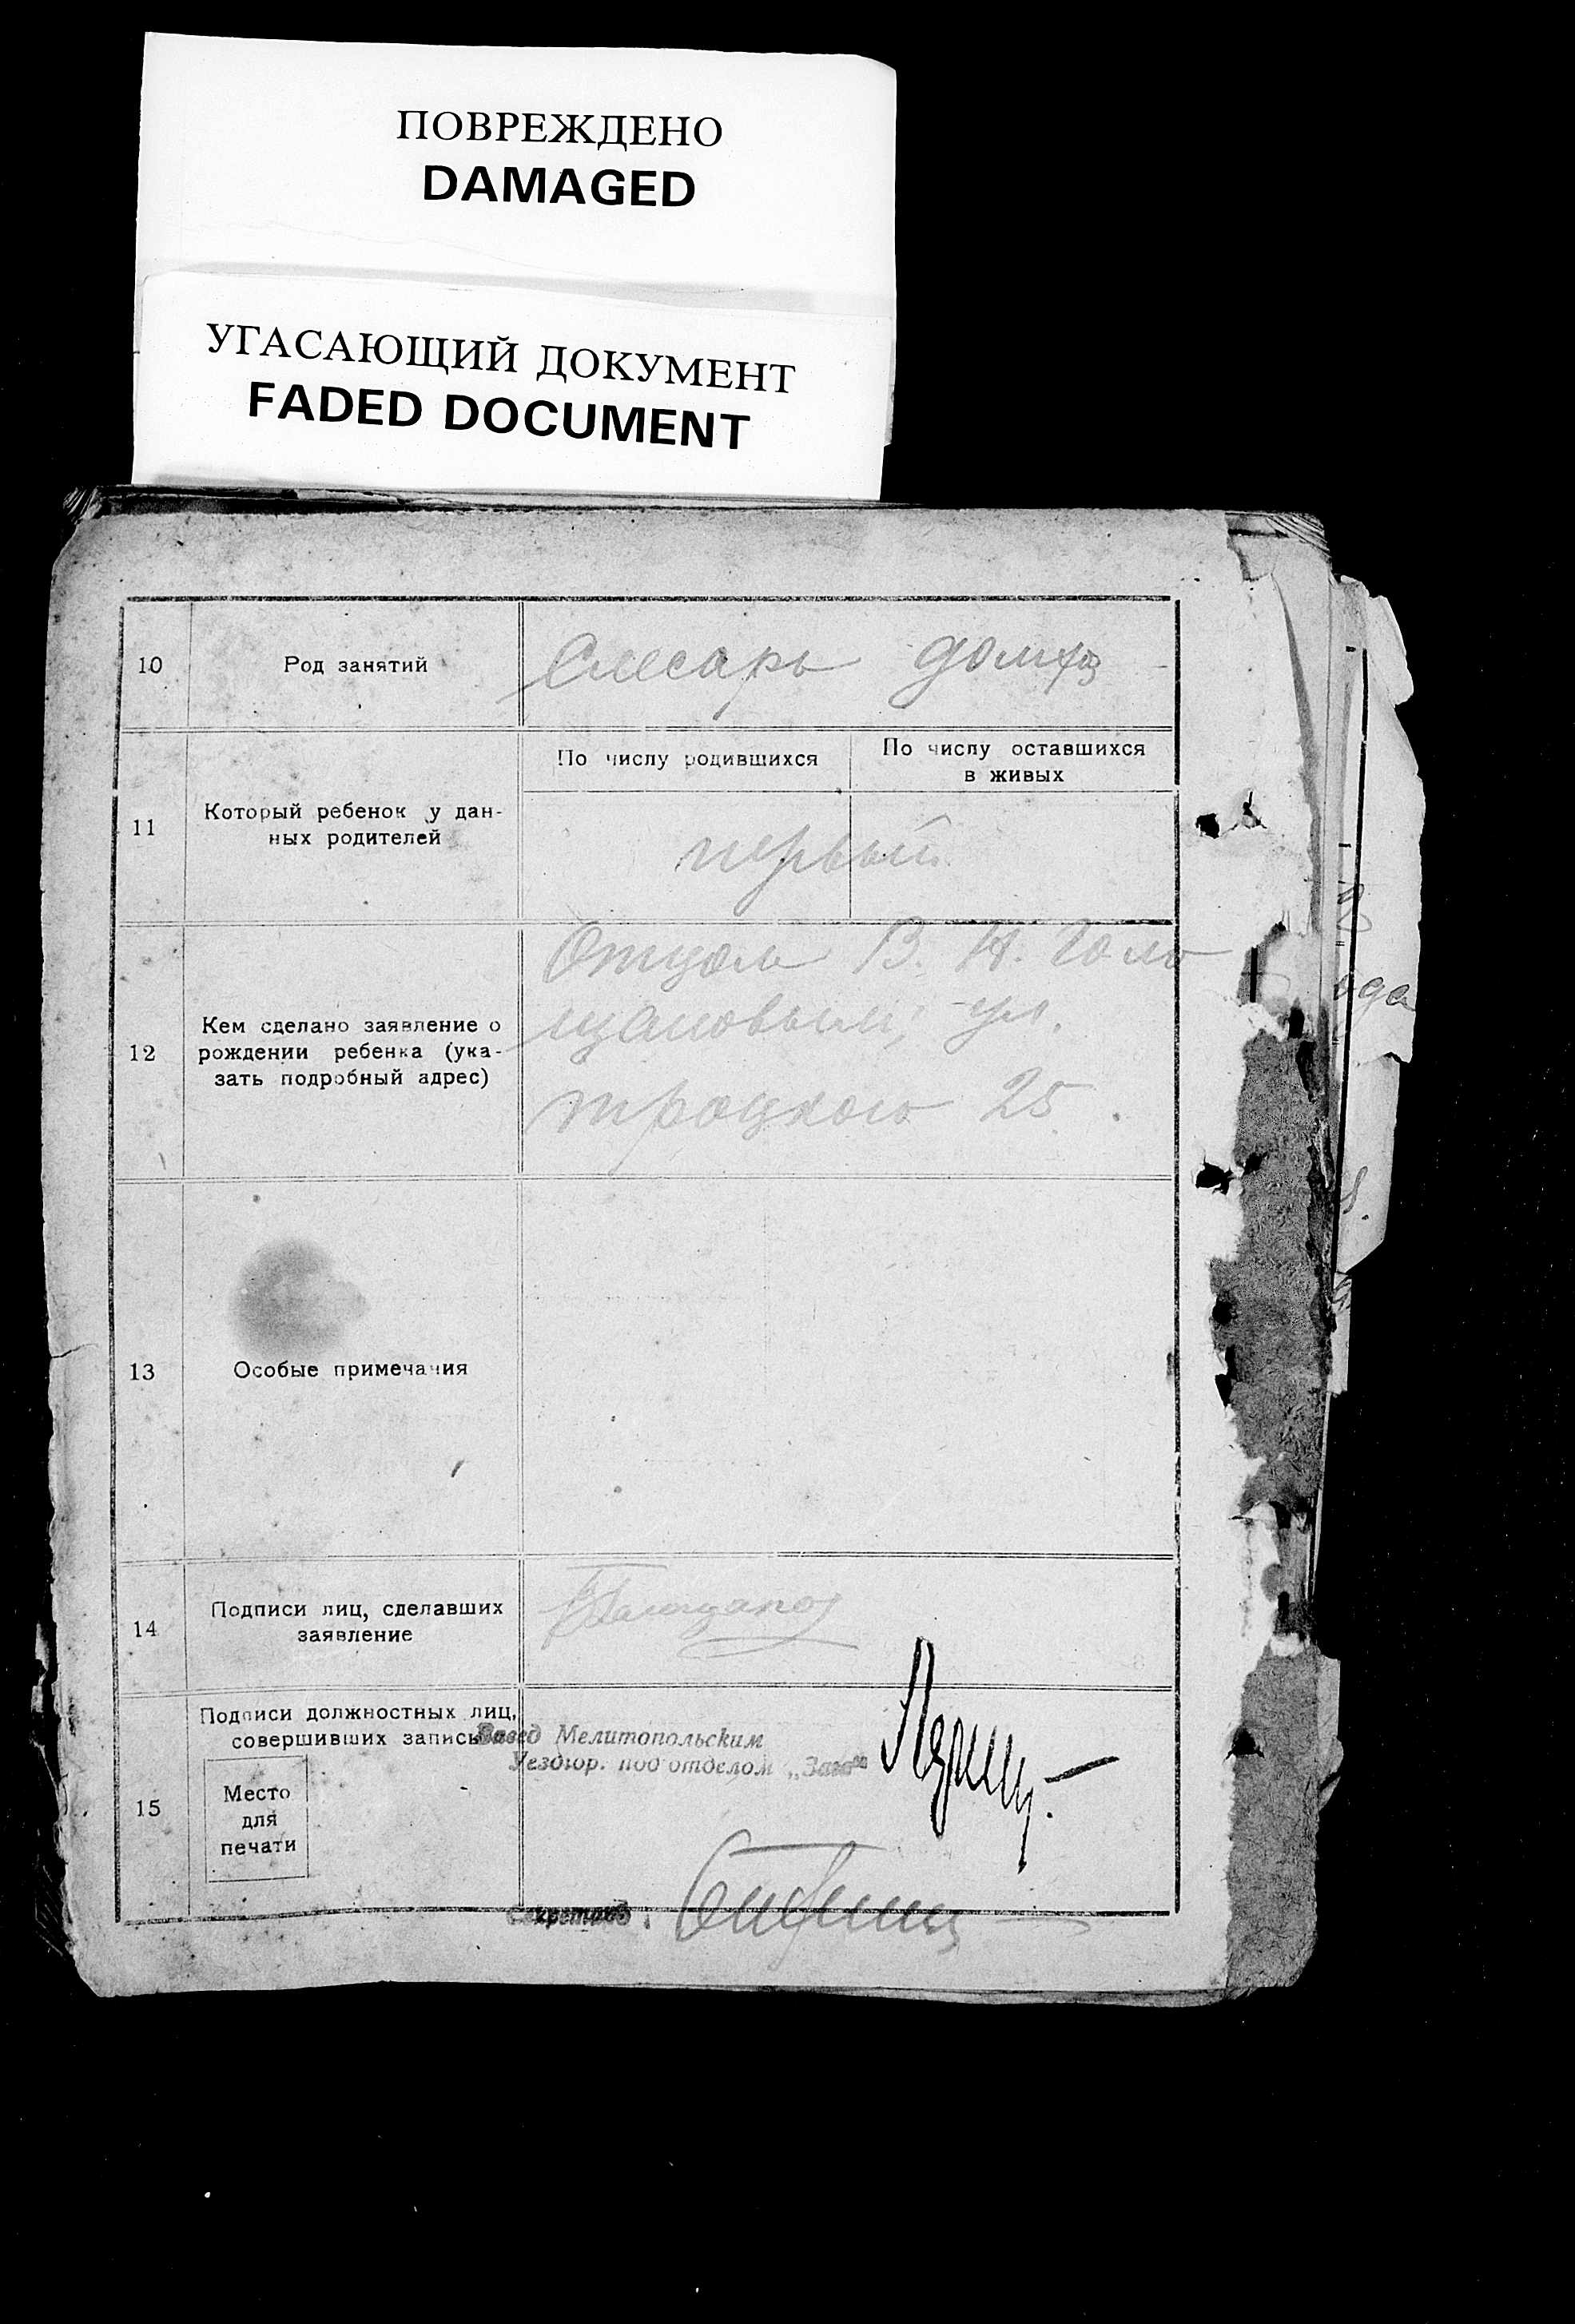 ПОВРЕЖДЕНО
DAMAGED
УГАСАЮЩИЙ ДОКУМЕНТ
FADED DOCUMENT
10 Род занятий Слесарь
11 Который ребенок у дан-
ных родителей
По числу родившихся
По числу оставшихся
в живых
первый
12 Кем сделано заявление о
рождении ребенка (ука-
зать подробный адрес)
Отцом В. Н.
ул.
троцкого 25.
13 Особые примечания
14 Подписи лиц, сделавших
заявление
15 Подписи должностных лиц,
совершивших запись
Место
для
печати
Завед Мелитопольским
Уездюр. подотделом „Загс“
Секретарь